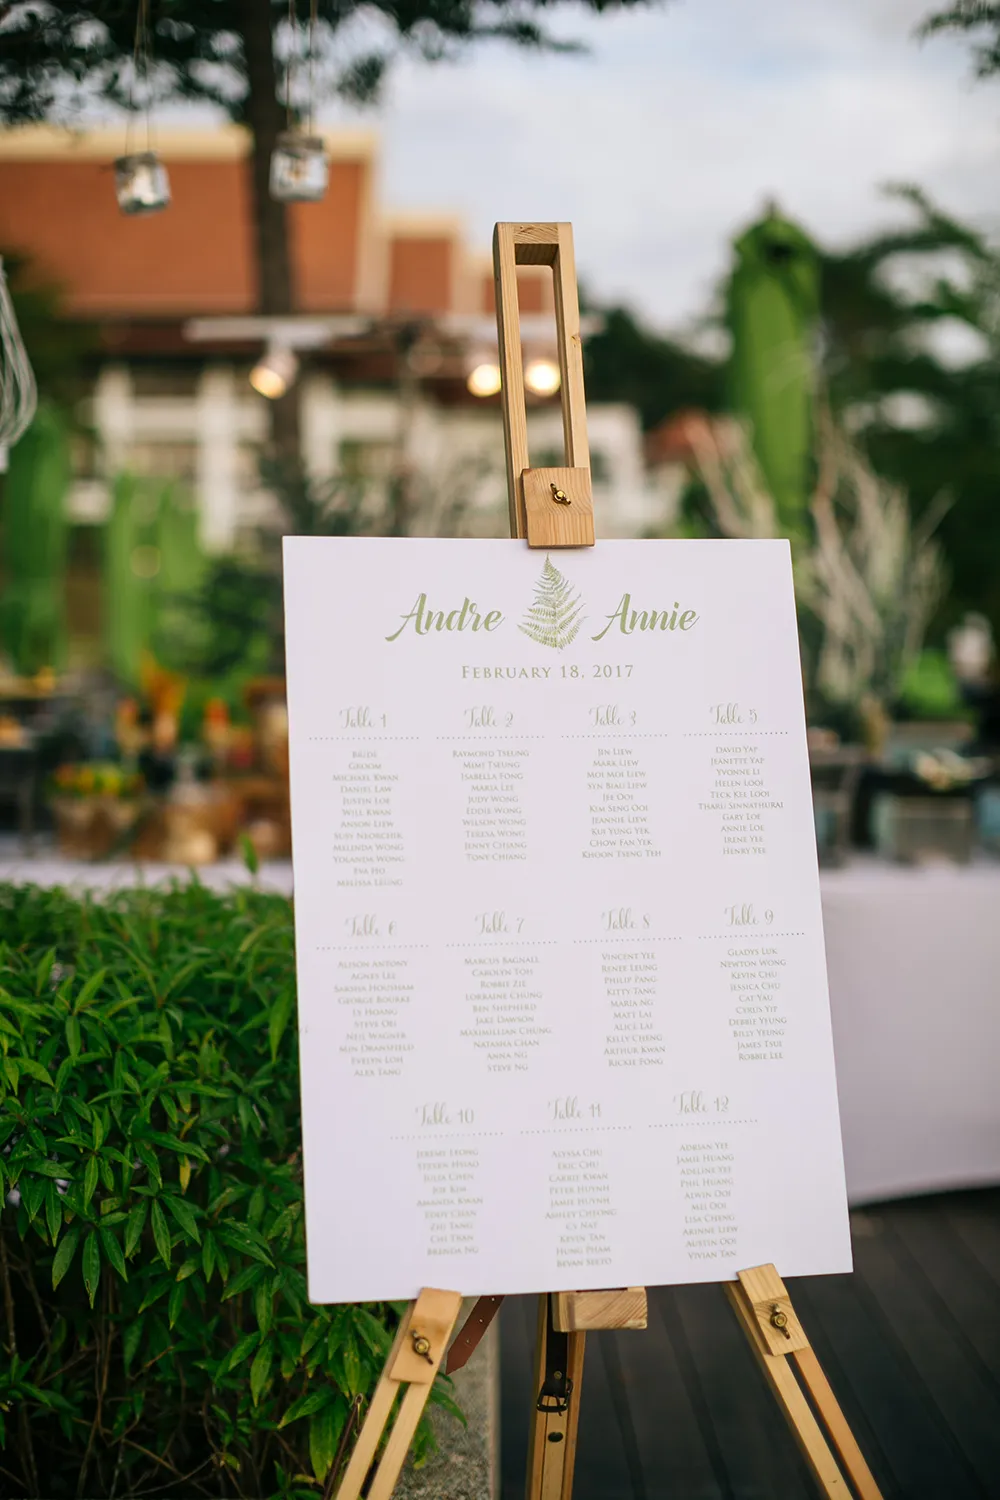 Andre Annie
February 18, 2017
Table 1
Bride
Groom
Michael Kwan
Daniel Law
Justin Loe
Will Kwan
Anson Liew
Susy Neorchik
Melinda Wong
Yolanda Wong
Eva Ho
Melissa Leung
Table 2
Raymond Tseung
Mimi Tseung
Isabella Fong
Maria Lee
Judy Wong
Eddie Wong
Wilson Wong
Teresa Wong
Jenny Chiang
Tony Chiang
Table 3
Jin Liew
Mark Liew
Moi Moi Liew
Yox Biau Liew
Jee Ooi
Kim Seng Ooi
Jeannie Liew
Kui Yung Yek
Chow Fan Yek
Khoon Tseng Teh
Table 5
David Yap
Jeanette Yap
Yvonne Li
Helen Looi
Teck Kee Looi
Tharu Sinnathurai
Gary Loe
Annie Loe
Irene Yee
Henry Yee
Table 6
Alison Antony
Agnes Lee
Sarsha Housham
George Bourke
Le Hoang
Steve Oei
Neil Wagner
Sun Dransfield
Evelyn Loh
Alex Tang
Table 7
Marcus Bagnall
Carolyn Toh
Robbie Zie
Lorraine Chung
Ben Shepherd
Jake Dawson
Maximillian Chung
Natasha Chan
Anna Ng
Steve Ng
Table 8
Vincent Yee
Renee Leung
Philip Pang
Kitty Tang
Maria Ng
Matt Lai
Alice Lai
Kelly Cheng
Arthur Kwan
Rickie Fong
Table 9
Gladys Luk
Newton Wong
Kevin Chu
Jessica Chu
Cat Yau
Cyrus Yip
Debbie Yeung
Billy Yeung
James Tsui
Robbie Lee
Table 10
Jeremy Leong
Steven Hsiao
Julia Chen
Joe Kim
Amanda Kwan
Eddy Chan
Zhi Tang
Chi Tran
Brenda Ng
Table 11
Alyssa Chu
Eric Chu
Carrie Kwan
Peter Huynh
Jamie Huynh
Ashley Cheong
Cy Nat
Kevin Tan
Hung Pham
Bevan Seeto
Table 12
Adrian Yee
Jamie Huang
Adeline Yee
Phil Huang
Alwin Ooi
Mei Ooi
Lisa Cheng
Arinne Liew
Austin Ooi
Vivian Tan